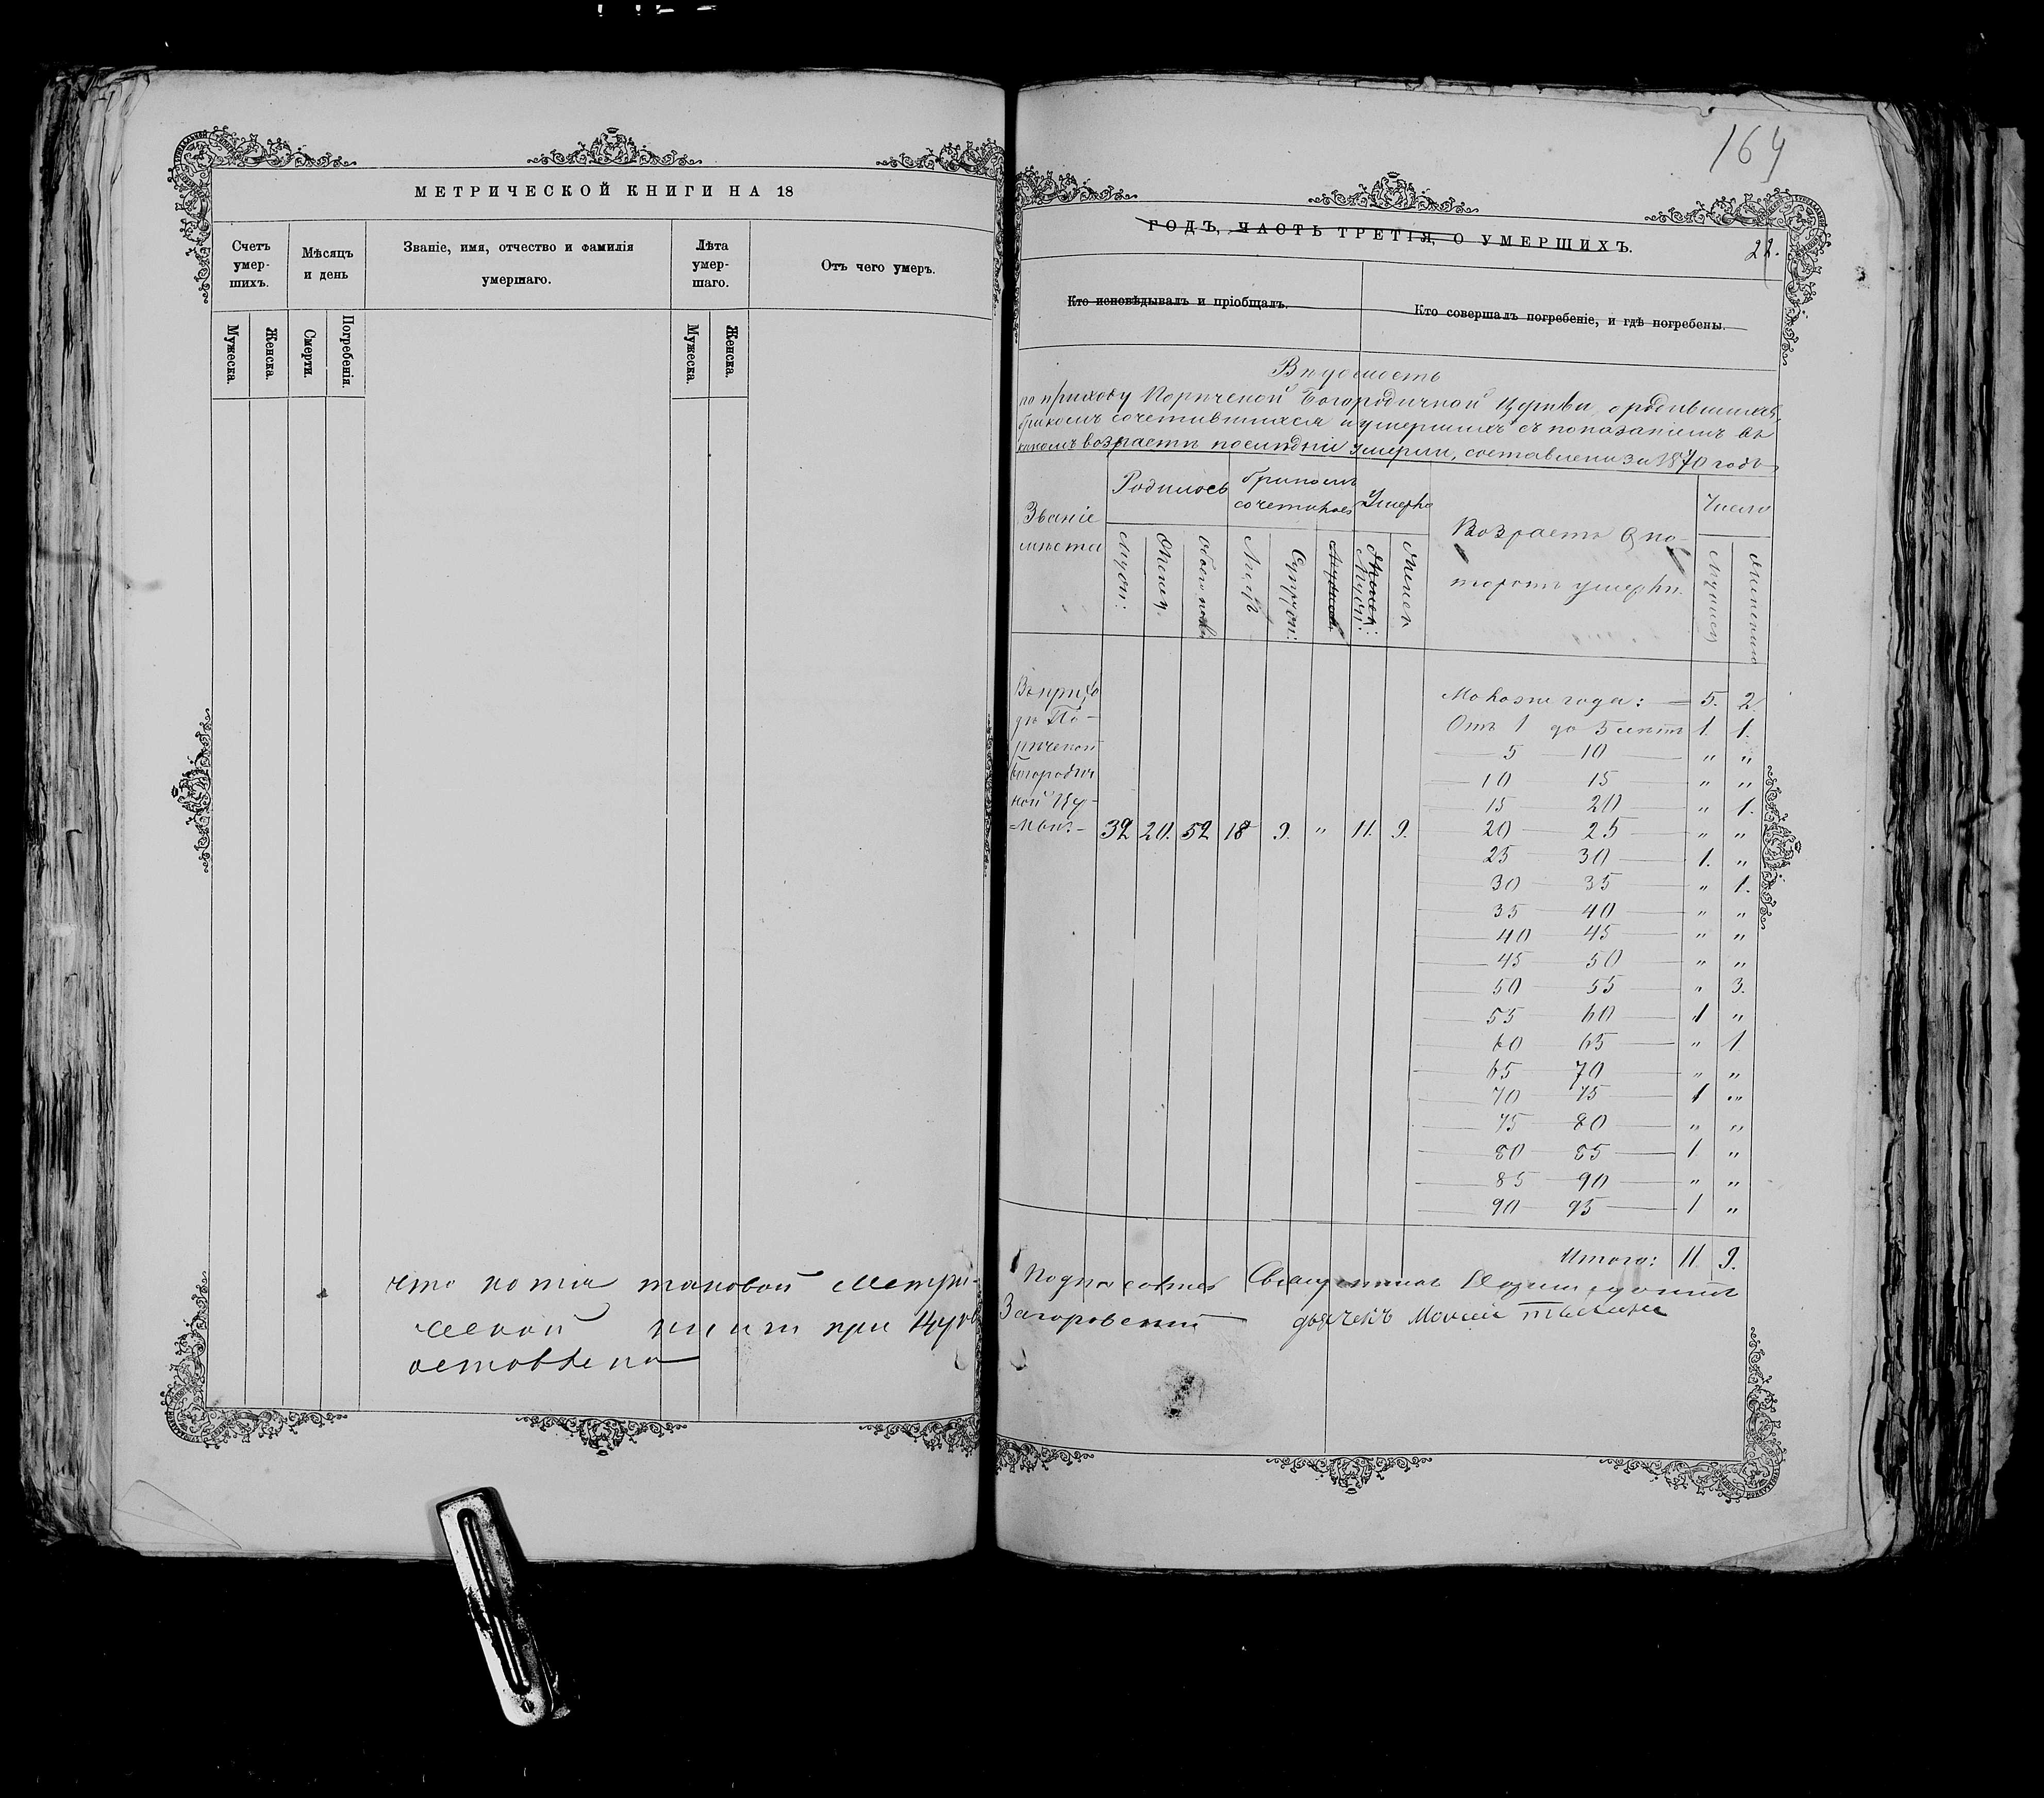 МЕТРИЧЕСКОЙ КНИГИ НА 18
Счетъ умер-шихъ.
Мѣсяцъ и день
Званіе, имя, отчество и фамилія умершаго.
Лѣта умер-шаго.
Отъ чего умеръ.
Мужеска.
Женска.
Смерти.
Погребенія.
Мужеска.
Женска.
что копія таковой Метри-
ческой книги при Церкв
оставлена
164
ГОДЪ, ЧАСТЬ ТРЕТІЯ, О УМЕРШИХЪ.
22.
Кто исповѣдывалъ и пріобщалъ.
Кто совершалъ погребеніе, и гдѣ погребены.
Вѣдомость
по приходу Порѣчской Богородичной Церкви, о родившихся,
бракомъ сочетавшихся и умершихъ съ показаніемъ въ
какомъ возрастѣ послѣдніе умерли, составлена за 1870 годъ
Званіе мѣста
Родилось
бракомъ сочеталось
Умерло
Возрастъ въ ко-
торомъ умерли.
Число
Муж:
Женск.
обоего пола
Лицъ
Супруж:
Муж:
Женск
Мужеск
Женскаго
Въ прихо
дѣ По-
рѣчской
Богородич
ной Це-
32 20. 52 18 9. " 11. 9.
Моложе года: 5. 2.
Отъ 1 до 5 лѣтъ 1. 1.
5 10 " "
10 15 " "
15 20 " 1.
20 25 " "
25 30 1. "
30 35 " 1.
35 40 " "
40 45 " "
45 50 " "
50 55 " 3.
55 60 1 "
60 65 " 1
65 70 " "
70 75 1 "
75 80 " "
80 85 1 "
85 90 " "
90 95 1 "
Итого: 11. 9.
Священникъ
Загоровскій дьячекъ